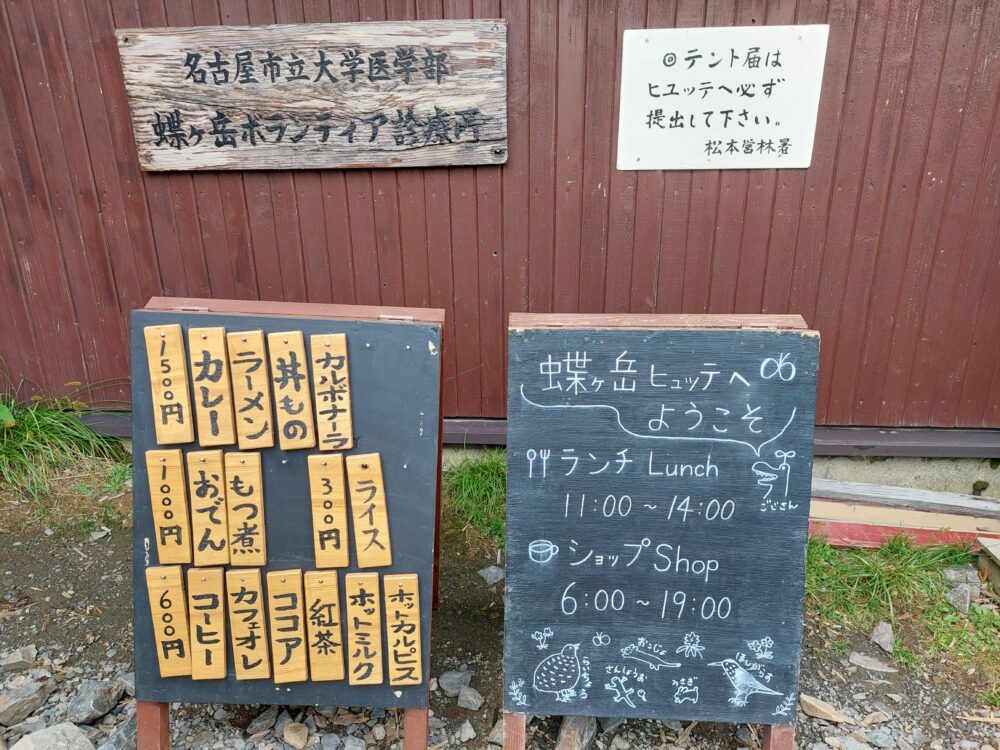 名古屋市立大学医学部
蝶ヶ岳ボランティア診療所
◎テント届は
ヒュッテへ必ず
提出して下さい。
松本営林署
1500円
カレー
ラーメン
丼もの
カルボナーラ
1000円
おでん
もつ煮
300円
ライス
600円
コーヒー
カフェオレ
ココア
紅茶
ホットミルク
ホットカルピス
蝶ヶ岳ヒュッテへ
ようこそ
ランチ Lunch
11:00～14:00
ごじさん
ショップ Shop
6:00～19:00
おこじょ
さんしょううお
うさぎ
ほしがらす